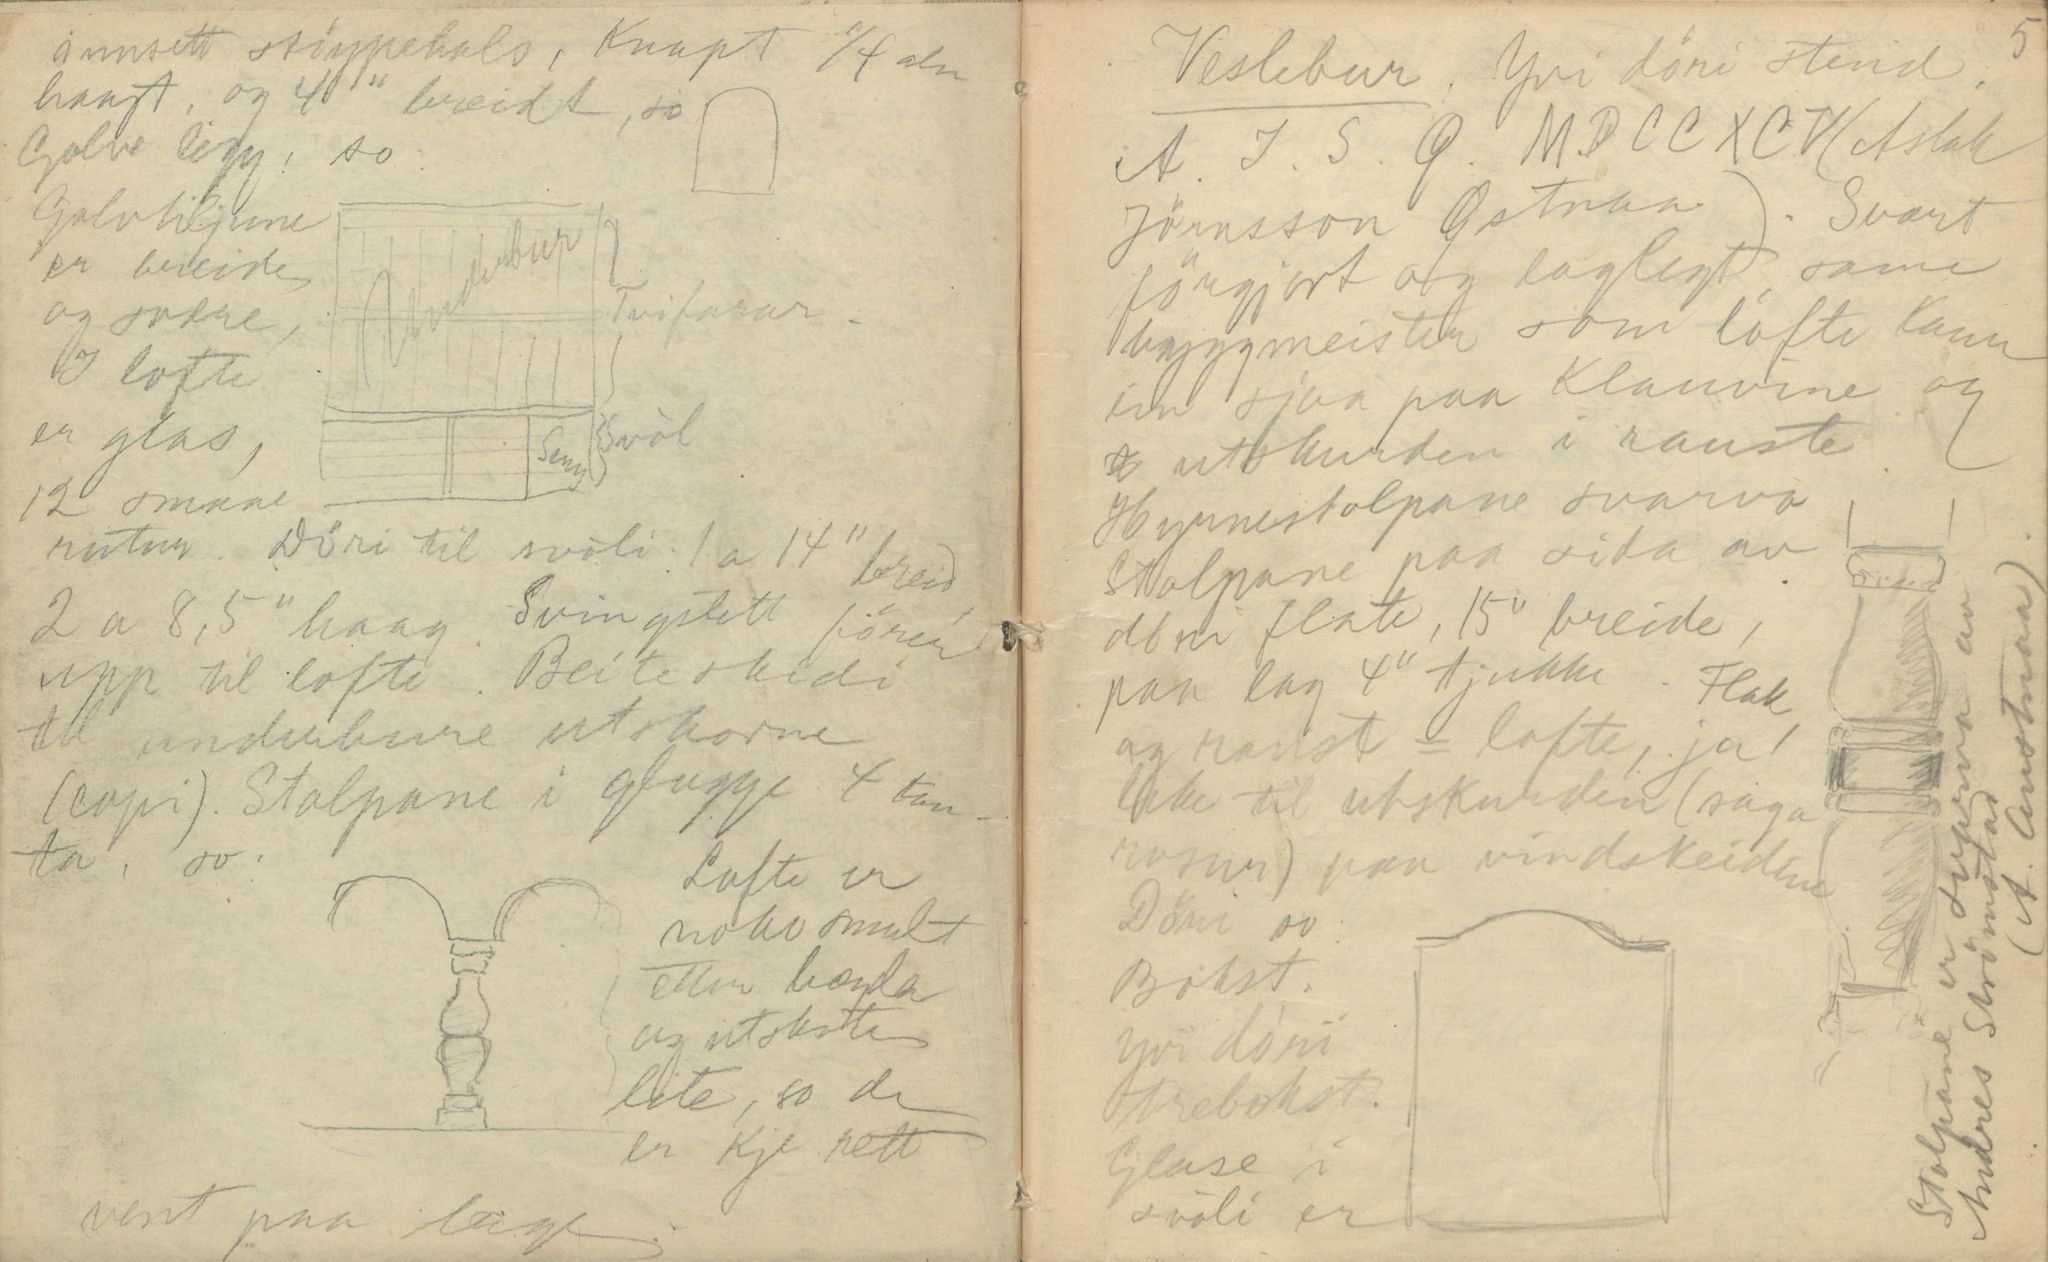 innsett støypehals, Knapt 1/4 aln
haagt, og 4" breidt, so
Golve ligg, so
Golvtiljune
er breide
og svære,
I lofte
er glas,
12 smaae
rutur. Döri til svöli 1 a 14" breid
2 a 8,5" haag. Svingslett
upp til lofte. Beiteskidi
til underbure utskorne
(copi). Stolpane i glugge 4 kan-
ta, so:
Underbur
Tvifarar
Svöl
Seng
Lofte er
noko smalt
etter høgda
og utskote
lite, so de
er kje rett
vent paa lage.
5
Veslebur. Yvi döri stend.
A. J. S. Ø. MDCCXCV (Aslak
Jörnsson Østnaa). Svært
forgjort og laglegt, same
byggmeister som lofte kann
ein sjaa paa Klauvine og
utskurden i rauste.
Hyrnestolpane svarva
Stolpane paa sida av
döri flate, 15" breide,
paa lag 4" tjukke. Flak
og raust = lofte, ja!
like til utskurden (saga
rosur) paa vindskeidine
Döri so.
Bokst.
yvi döri
trebokst.
Glase i
svöli er
Stolpane er av
Andres Strömstad
(A. Austnaa).